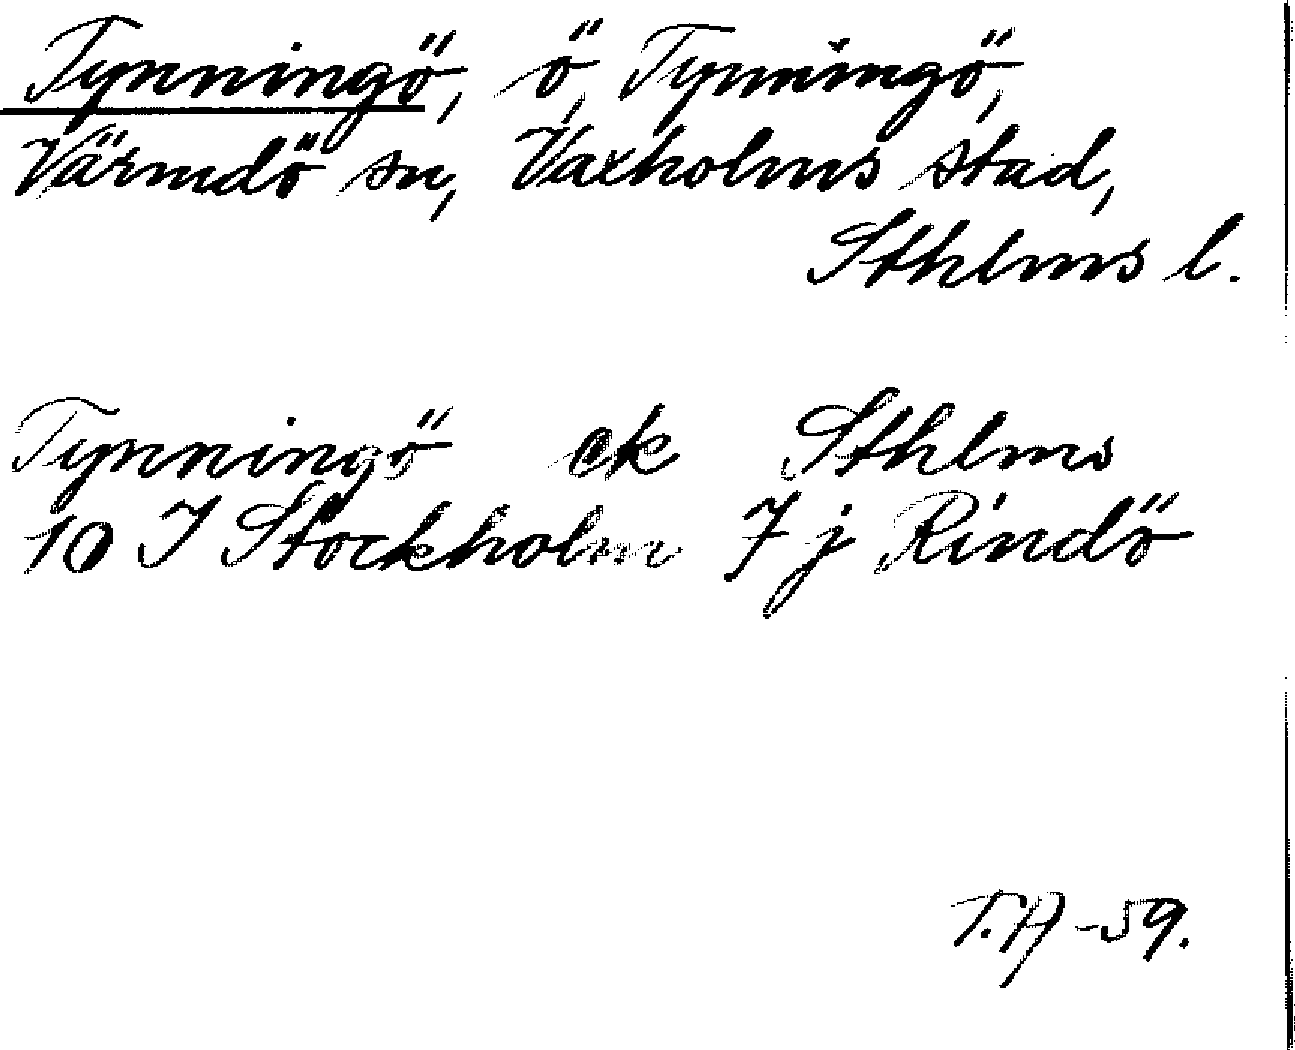 Tynningö, ö, Tynningö,
Värmdö sn, Vaxholms stad,
Sthlms l.
Tynningö ek Sthlms
10 I Stockholm 7 j Rindö
T.A -59.